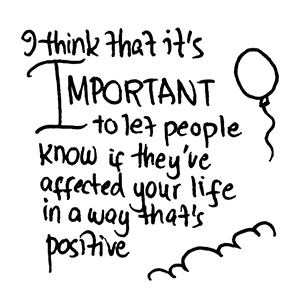 I think that it's
IMPORTANT
to let people
know if they've
affected your life
in a way that's
positive